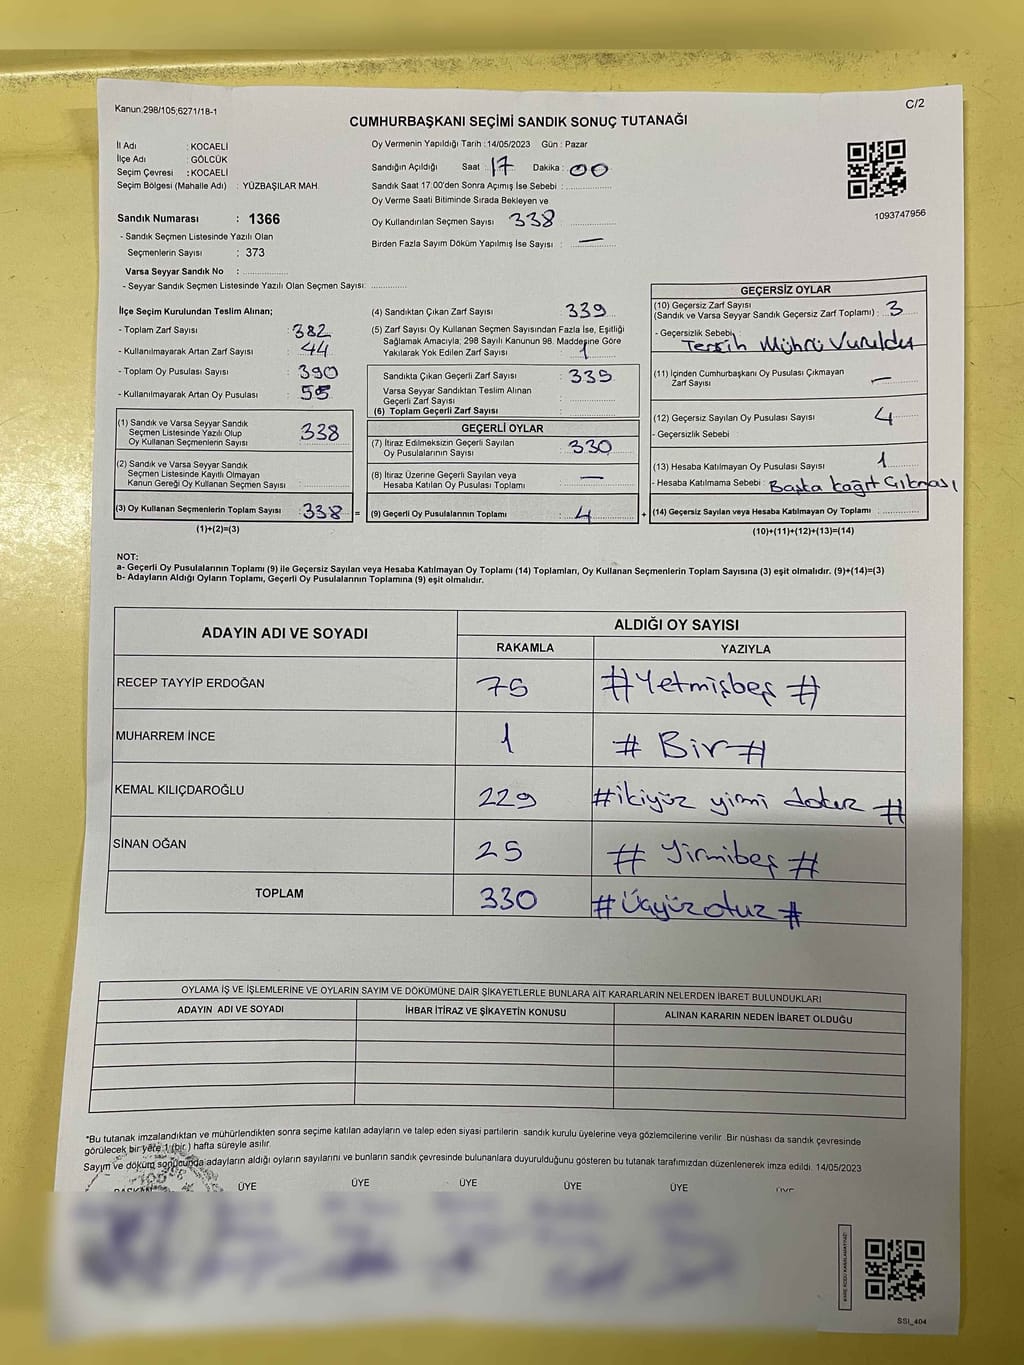 Kanun.298/105;6271/18-1
C/2
CUMHURBAŞKANI SEÇİMİ SANDIK SONUÇ TUTANAĞI
İl Adı : KOCAELİ
İlçe Adı : GÖLCÜK
Seçim Çevresi : KOCAELİ
Seçim Bölgesi (Mahalle Adı) : YÜZBAŞILAR MAH.
Sandık Numarası : 1366
- Sandık Seçmen Listesinde Yazılı Olan
Seçmenlerin Sayısı : 373
Varsa Seyyar Sandık No :
- Seyyar Sandık Seçmen Listesinde Yazılı Olan Seçmen Sayısı:
Oy Vermenin Yapıldığı Tarih :14/05/2023 Gün : Pazar
Sandığın Açıldığı Saat : 17 Dakika : 00
Sandık Saat 17:00'den Sonra Açımış İse Sebebi :
Oy Verme Saati Bitiminde Sırada Bekleyen ve
Oy Kullandırılan Seçmen Sayısı 338
Birden Fazla Sayım Döküm Yapılmış İse Sayısı : —
1093747956
İlçe Seçim Kurulundan Teslim Alınan;
- Toplam Zarf Sayısı : 382
- Kullanılmayarak Artan Zarf Sayısı : 44
- Toplam Oy Pusulası Sayısı : 390
- Kullanılmayarak Artan Oy Pusulası : 55
(1) Sandık ve Varsa Seyyar Sandık
Seçmen Listesinde Yazılı Olup
Oy Kullanan Seçmenlerin Sayısı : 338
(2) Sandık ve Varsa Seyyar Sandık
Seçmen Listesinde Kayıtlı Olmayan
Kanun Gereği Oy Kullanan Seçmen Sayısı :
(3) Oy Kullanan Seçmenlerin Toplam Sayısı : 338 =
(1)+(2)=(3)
(4) Sandıktan Çıkan Zarf Sayısı : 339
(5) Zarf Sayısı Oy Kullanan Seçmen Sayısından Fazla İse, Eşitliği
Sağlamak Amacıyla; 298 Sayılı Kanunun 98. Maddesine Göre
Yakılarak Yok Edilen Zarf Sayısı : 1
Sandıkta Çıkan Geçerli Zarf Sayısı : 335
Varsa Seyyar Sandıktan Teslim Alınan
Geçerli Zarf Sayısı :
(6) Toplam Geçerli Zarf Sayısı :
GEÇERLİ OYLAR
(7) İtiraz Edilmeksizin Geçerli Sayılan
Oy Pusulalarının Sayısı : 330
(8) İtiraz Üzerine Geçerli Sayılan veya
Hesaba Katılan Oy Pusulası Toplamı : —
(9) Geçerli Oy Pusulalarının Toplamı : 4 +
GEÇERSİZ OYLAR
(10) Geçersiz Zarf Sayısı
(Sandık ve Varsa Seyyar Sandık Geçersiz Zarf Toplamı) : 3
- Geçersizlik Sebebi :
Tercih Mührü Vuruldu
(11) İçinden Cumhurbaşkanı Oy Pusulası Çıkmayan
Zarf Sayısı : —
(12) Geçersiz Sayılan Oy Pusulası Sayısı : 4
- Geçersizlik Sebebi :
(13) Hesaba Katılmayan Oy Pusulası Sayısı : 1
- Hesaba Katılmama Sebebi : Başka kağıt Çıkması
(14) Geçersiz Sayılan veya Hesaba Katılmayan Oy Toplamı :
(10)+(11)+(12)+(13)=(14)
NOT:
a- Geçerli Oy Pusulalarının Toplamı (9) ile Geçersiz Sayılan veya Hesaba Katılmayan Oy Toplamı (14) Toplamları, Oy Kullanan Seçmenlerin Toplam Sayısına (3) eşit olmalıdır. (9)+(14)=(3)
b- Adayların Aldığı Oyların Toplamı, Geçerli Oy Pusulalarının Toplamına (9) eşit olmalıdır.
ADAYIN ADI VE SOYADI
ALDIĞI OY SAYISI
RAKAMLA YAZIYLA
RECEP TAYYİP ERDOĞAN 75 #Yetmişbeş #
MUHARREM İNCE 1 # Bir #
KEMAL KILIÇDAROĞLU 229 #ikiyüz yirmi dokuz #
SİNAN OĞAN 25 # Yirmibeş #
TOPLAM 330 #Üçyüzotuz #
OYLAMA İŞ VE İŞLEMLERİNE VE OYLARIN SAYIM VE DÖKÜMÜNE DAİR ŞİKAYETLERLE BUNLARA AİT KARARLARIN NELERDEN İBARET BULUNDUKLARI
ADAYIN ADI VE SOYADI İHBAR İTİRAZ VE ŞİKAYETİN KONUSU ALINAN KARARIN NEDEN İBARET OLDUĞU
*Bu tutanak imzalandıktan ve mühürlendikten sonra seçime katılan adayların ve talep eden siyasi partilerin sandık kurulu üyelerine veya gözlemcilerine verilir. Bir nüshası da sandık çevresinde
görülecek bir yere 1 (bir ) hafta süreyle asılır.
Sayım ve döküm sonucunda adayların aldığı oyların sayılarını ve bunların sandık çevresinde bulunanlara duyurulduğunu gösteren bu tutanak tarafımızdan düzenlenerek imza edildi. 14/05/2023
BAŞKAN ÜYE ÜYE ÜYE ÜYE ÜYE ÜYE
SSI_404